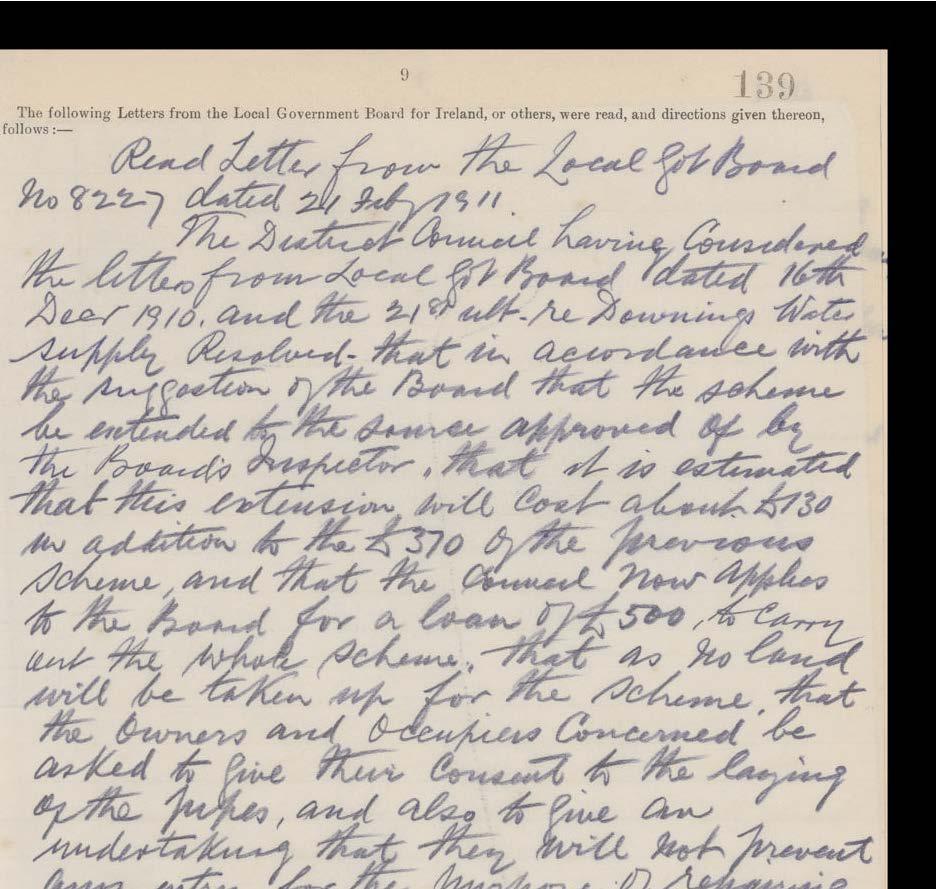 9
139
The following Letters from the Local Government Board for Ireland, or others, were read, and directions given thereon,
follows :—
Read Letter from the Local Govt Board
No 8227 dated 21 Feby 1911.
The District Council having Considered
the letters from Local Govt Board dated 16th
Decr 1910. and the 21st ult - re Downings Water
supply Resolved - that in accordance with
the suggestion of the Board that the scheme
be extended to the source approved of by
the Board's Inspector, that it is estimated
that this extension will cost about £130
in addition to the £370 of the previous
scheme, and that the Council now applies
to the Board for a loan of £500, to carry
out the whole scheme. that as no land
will be taken up for the scheme, that
the Owners and Occupiers Concerned be
asked to give their consent to the laying
of the pipes, and also to give an
undertaking that they will not prevent
any entry for the purpose of repairing